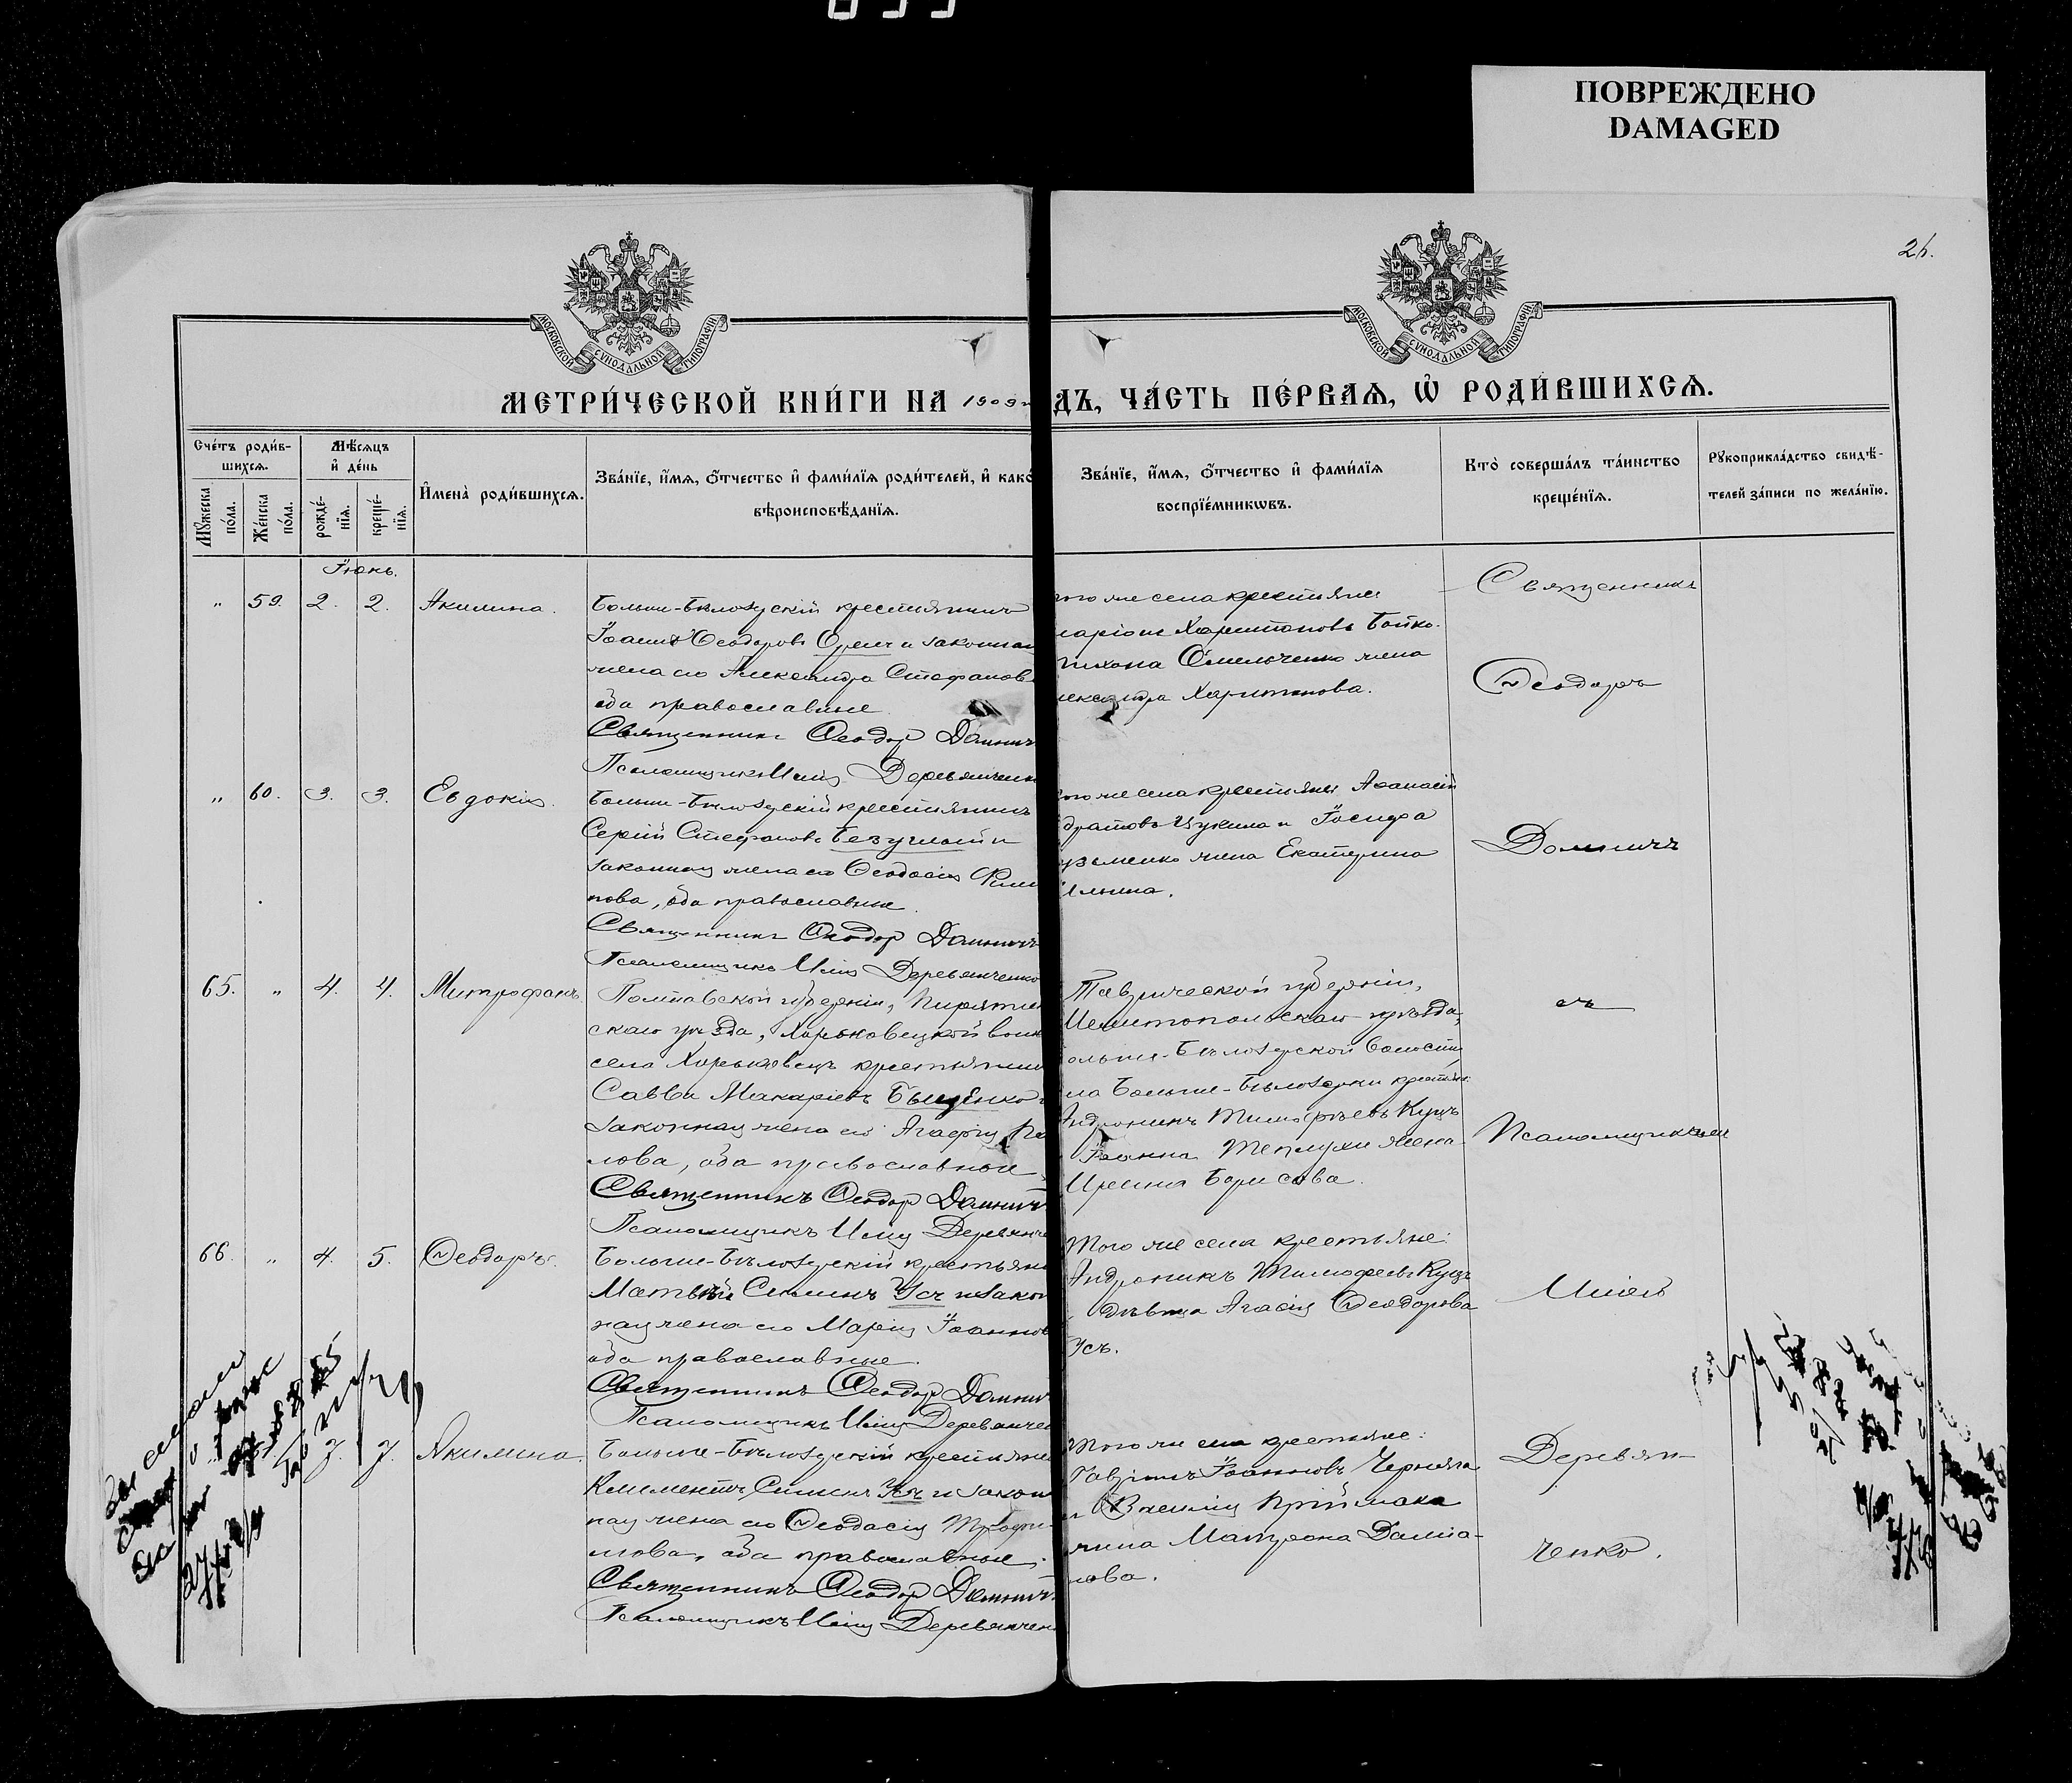 ПОВРЕЖДЕНО
DAMAGED
26.
МОСКОВСКОЙ СУНОДАЛЬНОЙ ТИПОГРАФІИ
МОСКОВСКОЙ СУНОДАЛЬНОЙ ТИПОГРАФІИ
МЕТРИ́ЧЕСКОЙ КНИ́ГИ НА 1909
ДЪ, ЧА́СТЬ ПЕ́РВАѦ, Ѡ҆ РОДИ́ВШИХСѦ.
Сче́тъ роди́в-
шихсѧ.
Мѣ́сѧцъ
и҆ де́нь
Мꙋ́жеска
по́ла.
Же́нска
по́ла.
рожде́-
нїѧ.
креще́-
нїѧ.
И҆мена̀ роди́вшихсѧ.
Зва́нїе, и҆́мѧ, ѻ҆́тчество и҆ фами́лїѧ роди́телей, и҆ како
вѣроисповѣ́данїѧ.
Зва́нїе, и҆́мѧ, ѻ҆́тчество и҆ фами́лїѧ
воспрїе́мникѡвъ.
Кто̀ соверша́лъ та́инство
креще́нїѧ.
Рꙋкоприкла́дство свидѣ́-
телей за́писи по жела́нїю.
Іюнь.
„ 59. 2. 2. Акилина.
Больше-Бѣлозерскій крестьянинъ
Іоаннъ Ѳеодоровъ и законная
жена его Александра Стефанов
оба православные.
Священникъ Ѳеодор Домнич
Псаломщикъ Илія Деревянченк
ого же села крестьяне
ларіонъ Харитоновъ Бойко.
Тихона Омельченко жена
лександра Харитонова.
Священникъ
Ѳеодоръ
„ 60. 3. 3. Евдокія.
Больше-Бѣлозерскій крестьянинъ
Сергій Стефановъ Безуглый и
законная жена его Ѳеодосія Фили
пова, оба православные.
Священникъ Ѳеодор Домничъ
Псаломщикъ Илія Деревянченко
ого же села крестьяне Аѳанасій
и Іосифа
жена Екатерина
Ильина.
Домничъ
65. „ 4. 4. Митрофанъ.
Полтавской губерніи, Пирятин
скаго уѣзда, Харьковецкой воло
села Харьковецъ крестьянин
Савва Макаріевъ Быценко
законная жена его Агафія Па
лова, оба православные.
Священникъ Ѳеодор Домнич
Псаломщикъ Илія Деревянче
Таврической губерніи,
Мелитопольскаго уѣзда,
ольше-Бѣлозерской волости,
ла Больше-Бѣлозерки крестьяне:
Андроникъ Тимоѳеевъ Куцъ
Іоанна жена
Ирина Борисова.
съ
Псаломщикомъ
66. „ 4. 5. Ѳеодоръ.
Больше-Бѣлозерскій крестьяни
Матвѣй Симинъ Усъ и закон
ная жена его Марія Іоаннов
оба православные.
Священникъ Ѳеодор Домнич
Псаломщикъ Илія Деревянчен
Того же села крестьяне:
Андроникъ Тимоѳеевъ Куцъ
дѣвица Агаѳія Ѳеодорова
Усъ.
Иліей
7. 7. Якилина.
Больше-Бѣлозерскій крестьяни
Климентъ Симинъ Усъ и закон
ная жена его Ѳеодосія Трофи-
мова, оба православные.
Священникъ Ѳеодор Домнич
Псаломщикъ Илія Деревянчен
Того же села крестьяне:
Гавріилъ Іоанновъ Черняга
и Василія Приймака
жена Матрона Даміа-
нова.
Деревян-
ченко.